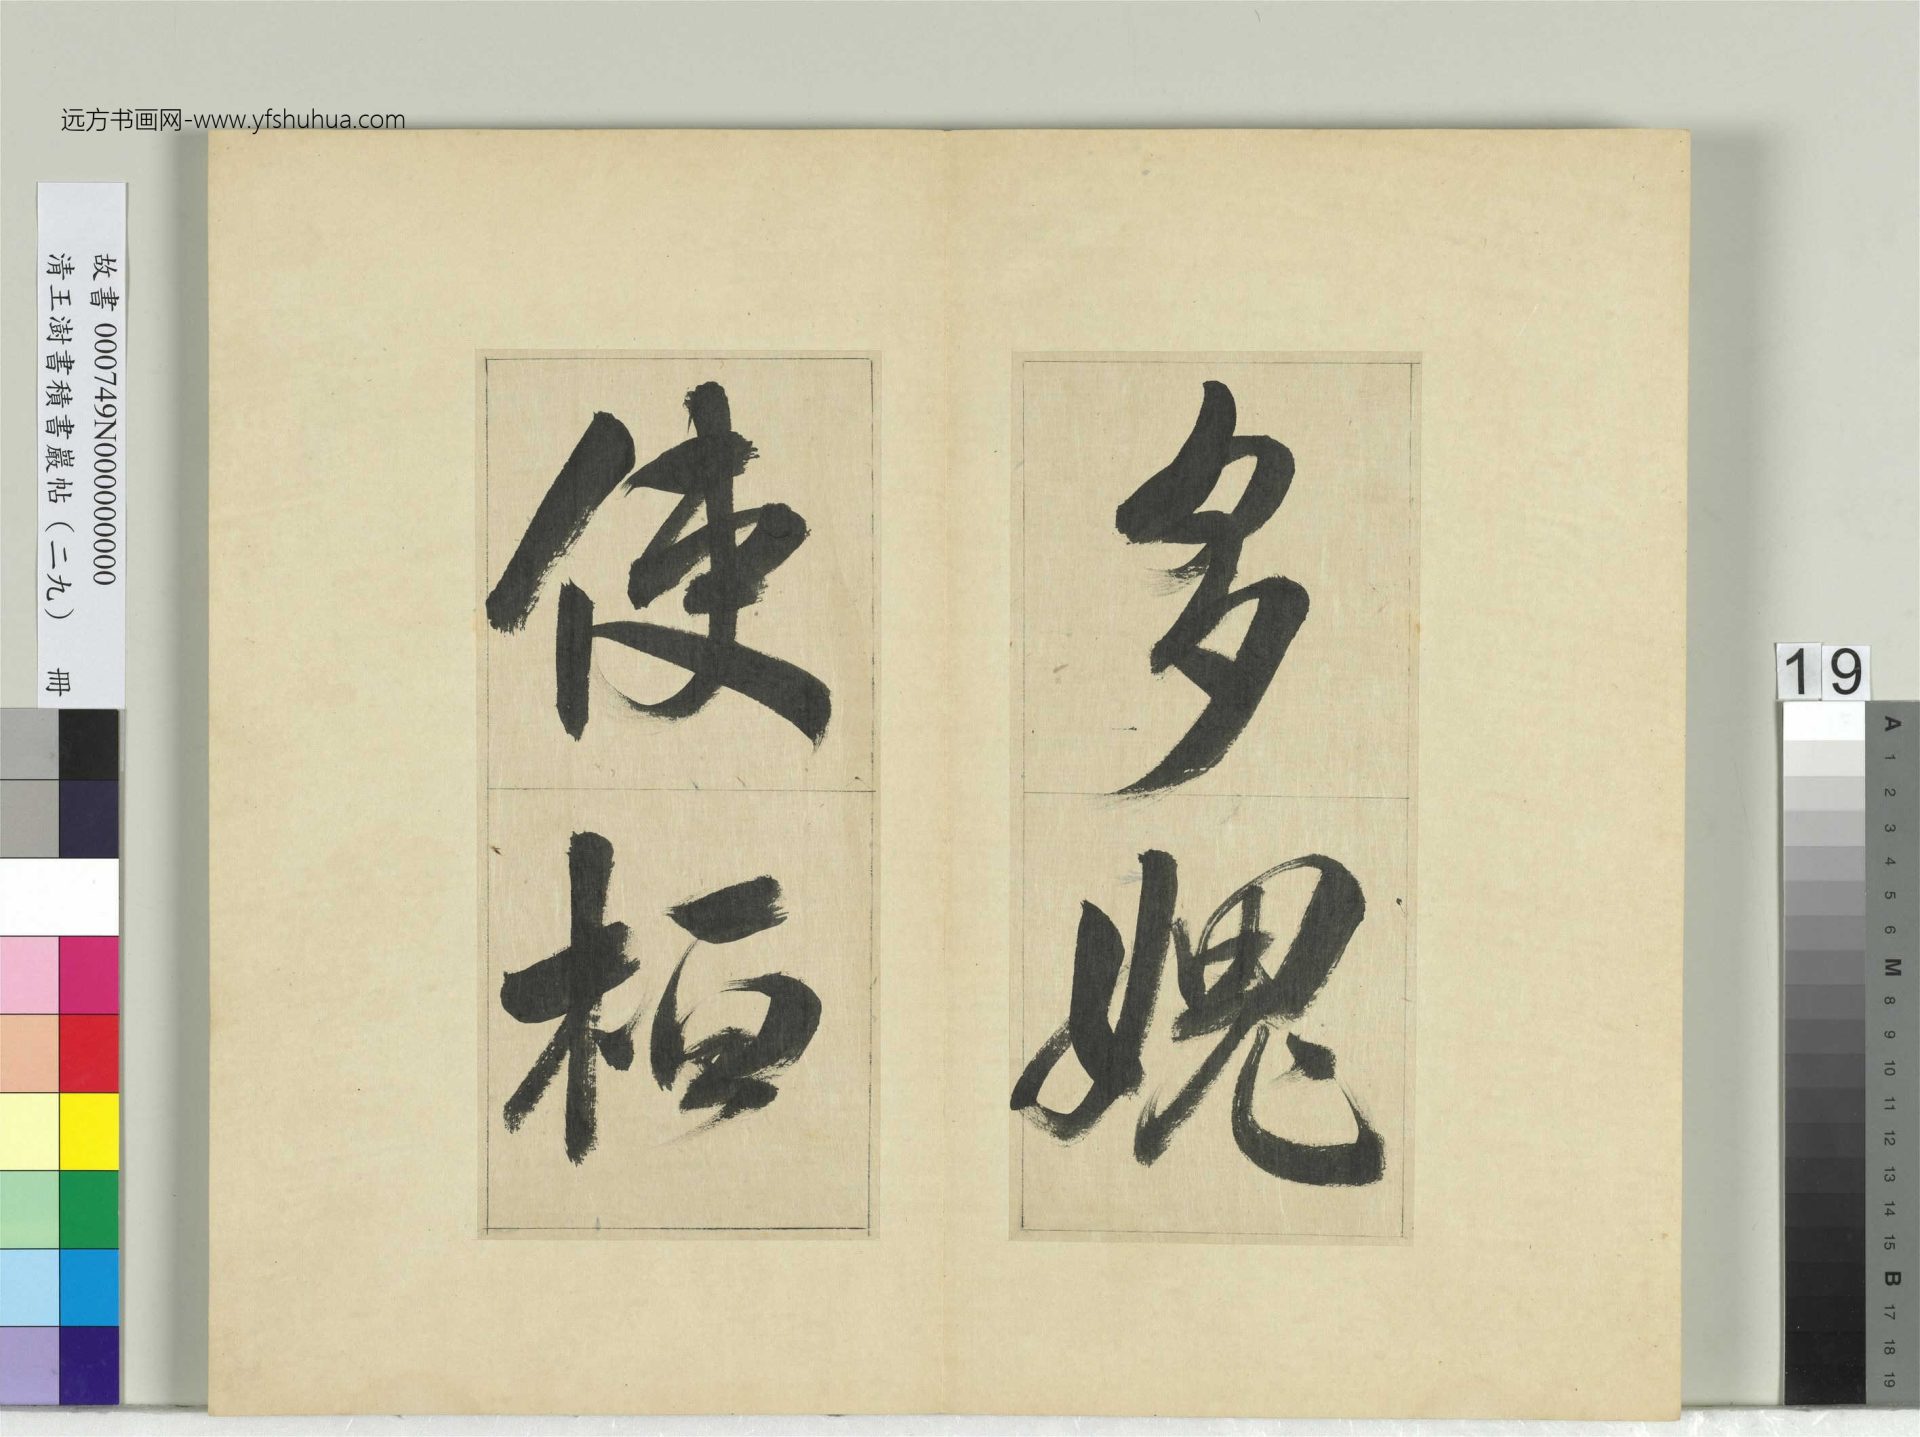 远方书画网-www.yfshuhua.com
故書 000749N000000000
清王澍書積書巖帖（二九） 冊
多媿
使桓
19
A
1
2
3
4
5
6
M
8
9
10
11
12
13
14
15
B
17
18
19